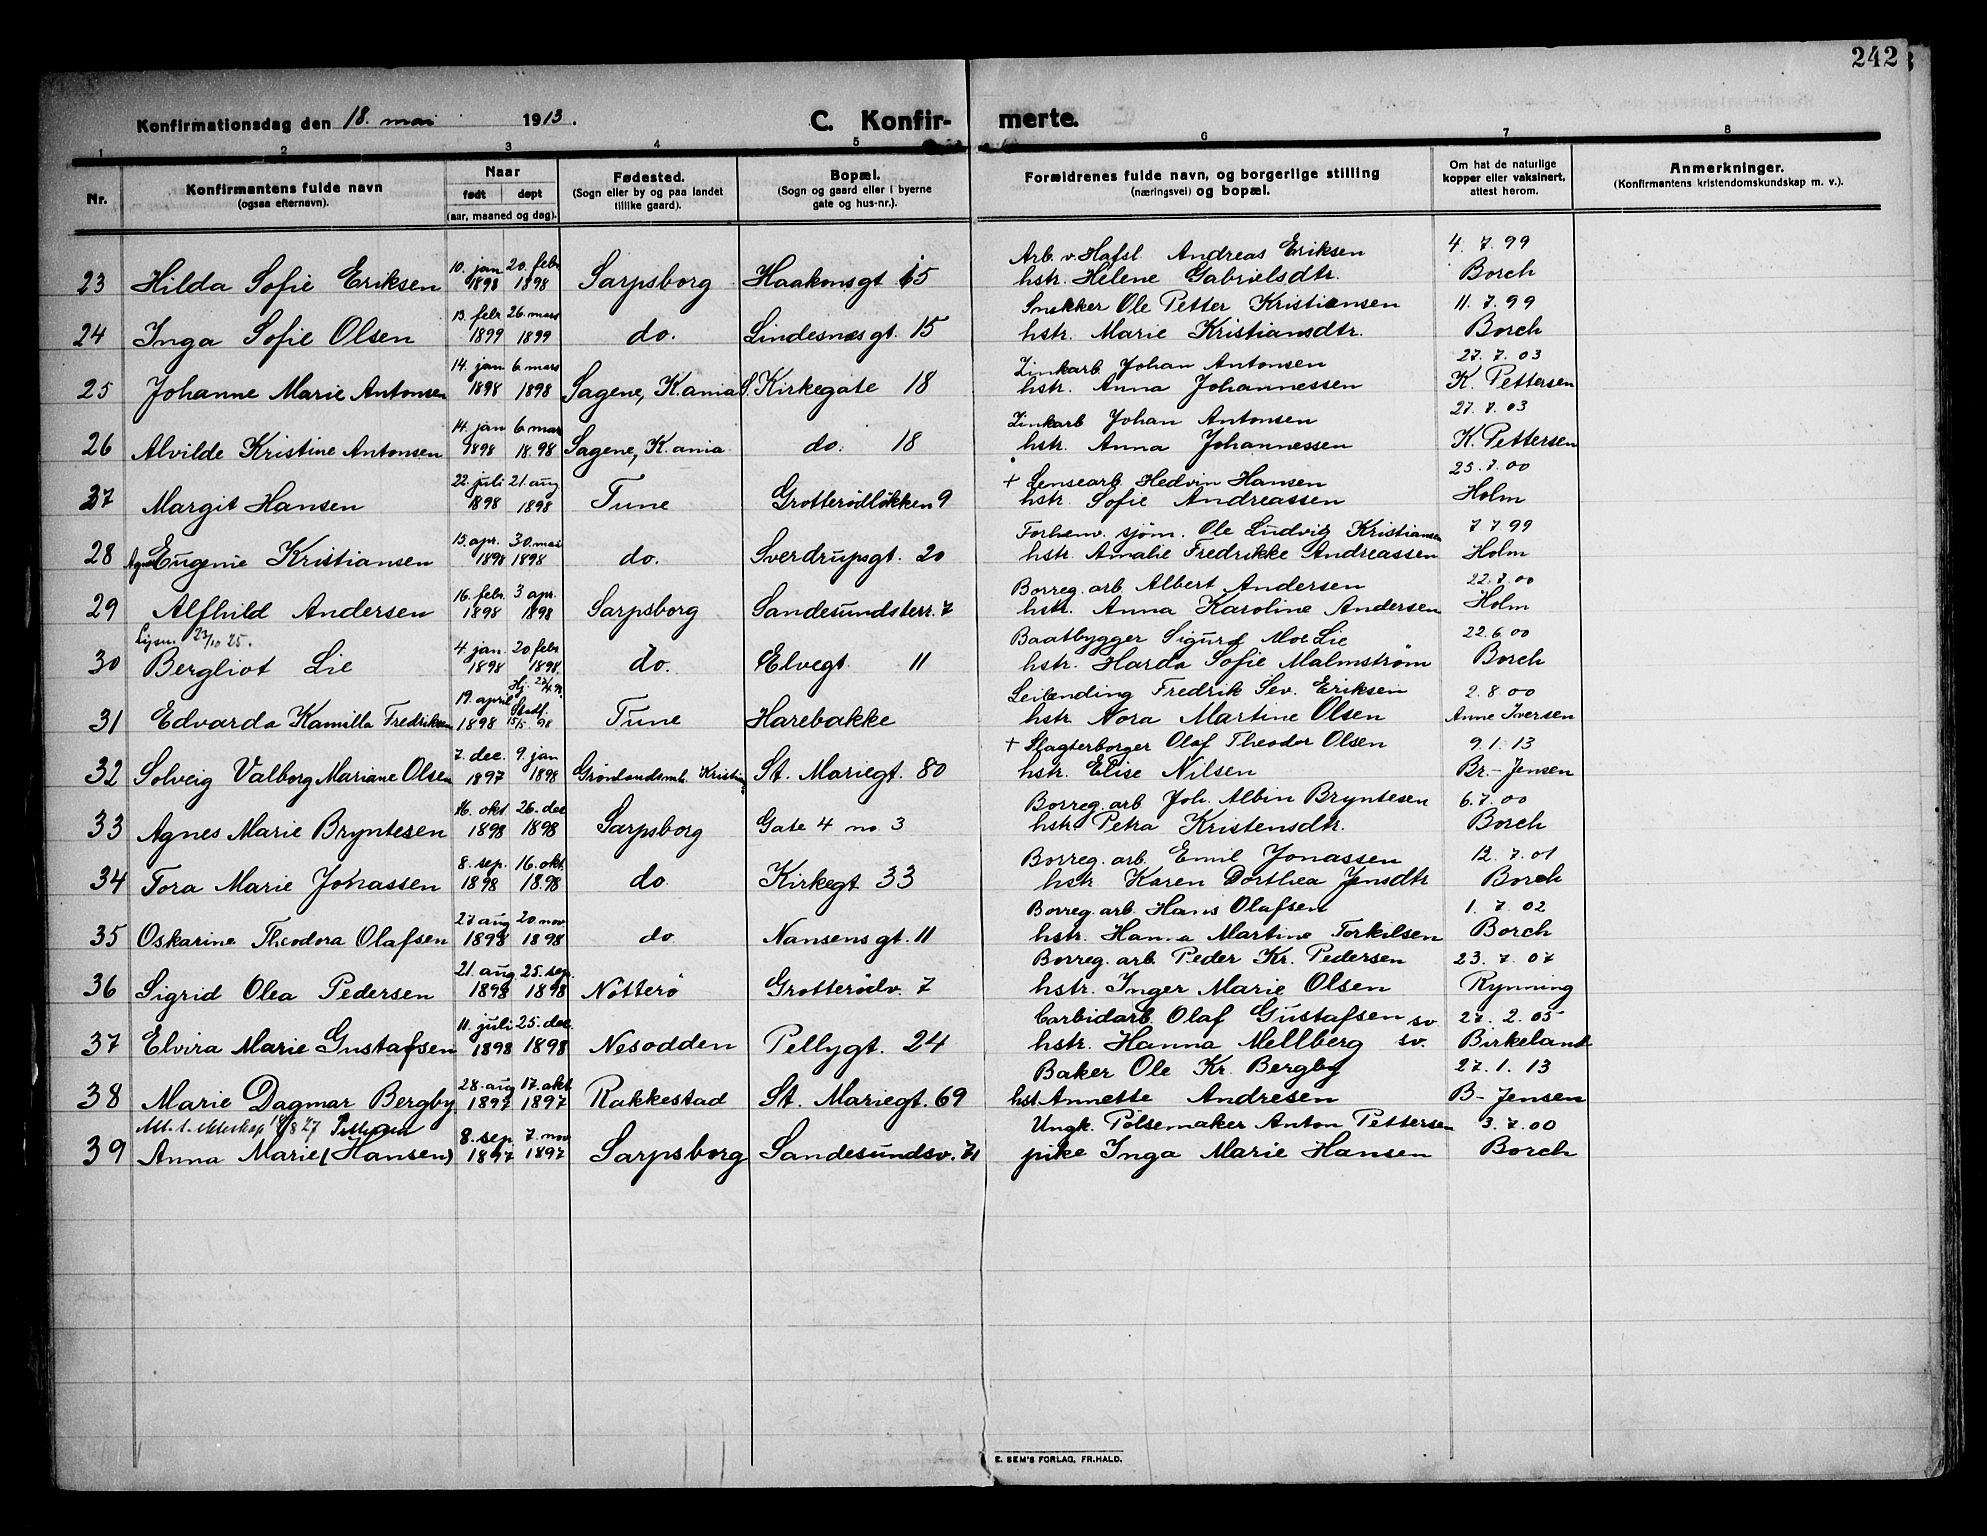 242
Konfirmationsdag den 18. mai 1913.
C. Konfir- merte.
1 2 3 4 5 6 7 8
Nr.
Konfirmantens fulde navn
(ogsaa efternavn).
Naar
født døpt
(aar, maaned og dag).
Fødested.
(Sogn eller by og paa landet
tillike gaard).
Bopæl.
(Sogn og gaard eller i byerne
gate og hus-nr.).
Forældrenes fulde navn, og borgerlige stilling
(næringsvei) og bopæl.
Om hat de naturlige
kopper eller vaksinert,
attest herom.
Anmerkninger.
(Konfirmantens kristendomskundskap m. v.).
10. jan 20. febr Arb. v. Hafsl Andreas Eriksen 4. 7. 99
23 Hilda Sofie Eriksen 1898 1898 Sarpsborg Haakonsgt 65 hstr. Helene Gabrielsdtr. Borch
13. febr 26. mars Snekker Ole Petter Kristiansen 11. 7. 99
24 Inga Sofie Olsen 1899 1899 do. Lindesnæsgt. 15 hstr. Marie Kristiansdtr. Borch
14. jan 6. mars Zinkarb Johan Antonsen 27. 7. 03
25 Johanne Marie Antonsen 1898 1898 Sagene, K.ania S. Kirkegate 18 hstr. Anna Johannessen K. Pettersen
14. jan 6. mars Zinkarb Johan Antonsen 27. 7. 03
26 Alvilde Kristine Antonsen 1898 18.98 Sagene, K.ania do. 18 hstr. Anna Johannessen K. Pettersen
22. juli 21. aug + Lensearb. Hedvin Hansen 25. 7. 00
27 Margit Hansen 1898 1898 Tune Grotterødløkken 9 hstr. Sofie Andreassen Holm
15. apr. 30. mai Forhenv. sjøm. Ole Ludvig Kristiansen 7 7 99
28 Agnes Eugenie Kristiansen 1898 1898 do. Sverdrupsgt. 20 hstr. Amalie Fredrikke Andreassen Holm
16. febr 3 apr. Borreg. arb Albert Andersen 22. 7. 00
29 Alfhild Andersen 1898 1898 Sarpsborg Sandesundsterr. 7 hstr. Anna Karoline Andersen Holm
Lysn. 23/10 25. 4. jan. 20 febr Baatbygger Sigurd Moe Lie 22. 6 00
30 Bergliot Lie 1898 1898. do. Elvegt. 11 hstr. Harda Sofie Malmstrøm Borch
19. april Hj. 23/4 98. Stadf. Leilending Fredrik Sev. Eriksen 2. 8. 00
31 Edvarda Kamilla Fredriksen 1898 15/5 98 Tune Harebakke hstr. Nora Martine Olsen Anne Iversen
7. dec. 9. jan + Slagterborger Olaf Theodor Olsen 9. 1. 13
32 Solveig Valborg Mariane Olsen 1897 1898 Grønlandsmh. Kristia St. Mariegt. 80 hstr. Elise Nilsen Br.- Jensen
16. okt 26. dec Borreg. arb Joh. Albin Bryntesen 6. 7. 00
33 Agnes Marie Bryntesen 1898 1898 Sarpsborg Gate 4 no. 3 hstr. Petra Kristensdtr. Borch
8. sep. 16. okt. Borreg. arb. Emil Jonassen 12. 7. 01
34 Tora Marie Jonassen 1898 18.98 do Kirkegt 33 hstr Karen Dorthea Jensdtr Borch
27 aug 20. nov. Borreg. arb. Hans Olafsen 1. 7. 02
35 Oskarine Theodora Olafsen 1898 1898 do Nansensgt. 11 hstr. Hanna Martine Torkilsen Borch
21. aug 25. sep. Borreg. arb. Peder Kr. Pedersen 23. 7. 07
36 Sigrid Olea Pedersen 1898 1898 Nøtterø Grotterødv. 7 hstr. Inger Marie Olsen Rynning
11. juli 25. dec. Carbidarb. Olaf Gustafsen sv 27. 2. 05
37 Elvira Marie Gustafsen 1898 1898 Nesodden Pellygt. 24 hstr. Hanna Mellberg sv. Birkeland
28. aug 17. okt Baker Ole Kr. Bergby 27. 1. 13
38 Marie Dagmar Bergby 1897 1897 Rakkestad St. Mariegt. 69 hst Annette Andresen B- Jensen
Att. t. ekteskap 18/8 27 Pettersen 8. sep. 7. nov. Ungk. Pølsemaker Anton Pettersen 3. 7. 00
39 Anna Marie (Hansen) 1897 1897 Sarpsborg Sandesundsv. 71 pike Inga Marie Hansen Borch
E. SEM'S FORLAG, FR.HALD.